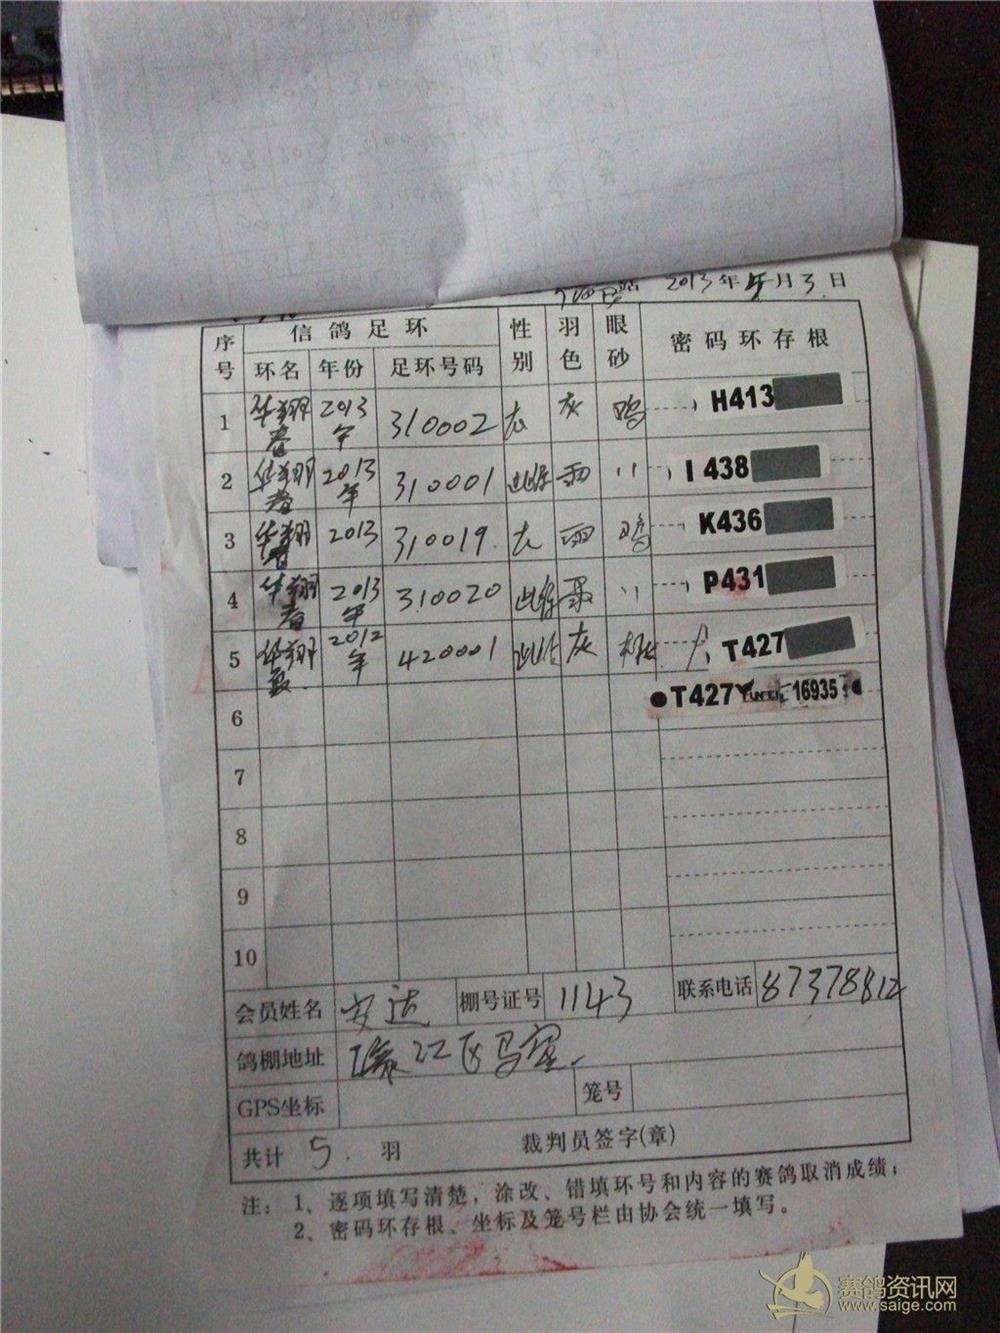 2013年5月3日
序号 信鸽足环 性别 羽色 眼砂 密码环存根
环名 年份 足环号码
1 华翔 2013年 310002 灰 鸡 H413
2 华翔 2013年 310001 雌 雨 〃 I 438
3 华翔 2013 310019 雨 鸡 K436
4 华翔 2013年 310020 雌 〃 P431
5 华翔 2012年 420001 雌 灰 桃 T427
6 T427 16935
7
8
9
10
会员姓名 安达 棚号证号 1143 联系电话 87378812
鸽棚地址
GPS坐标 笼号
共计 5 羽 裁判员签字(章)
注：1、逐项填写清楚，涂改、错填环号和内容的赛鸽取消成绩；
2、密码环存根、坐标及笼号栏由协会统一填写。
赛鸽资讯网
www.saige.com